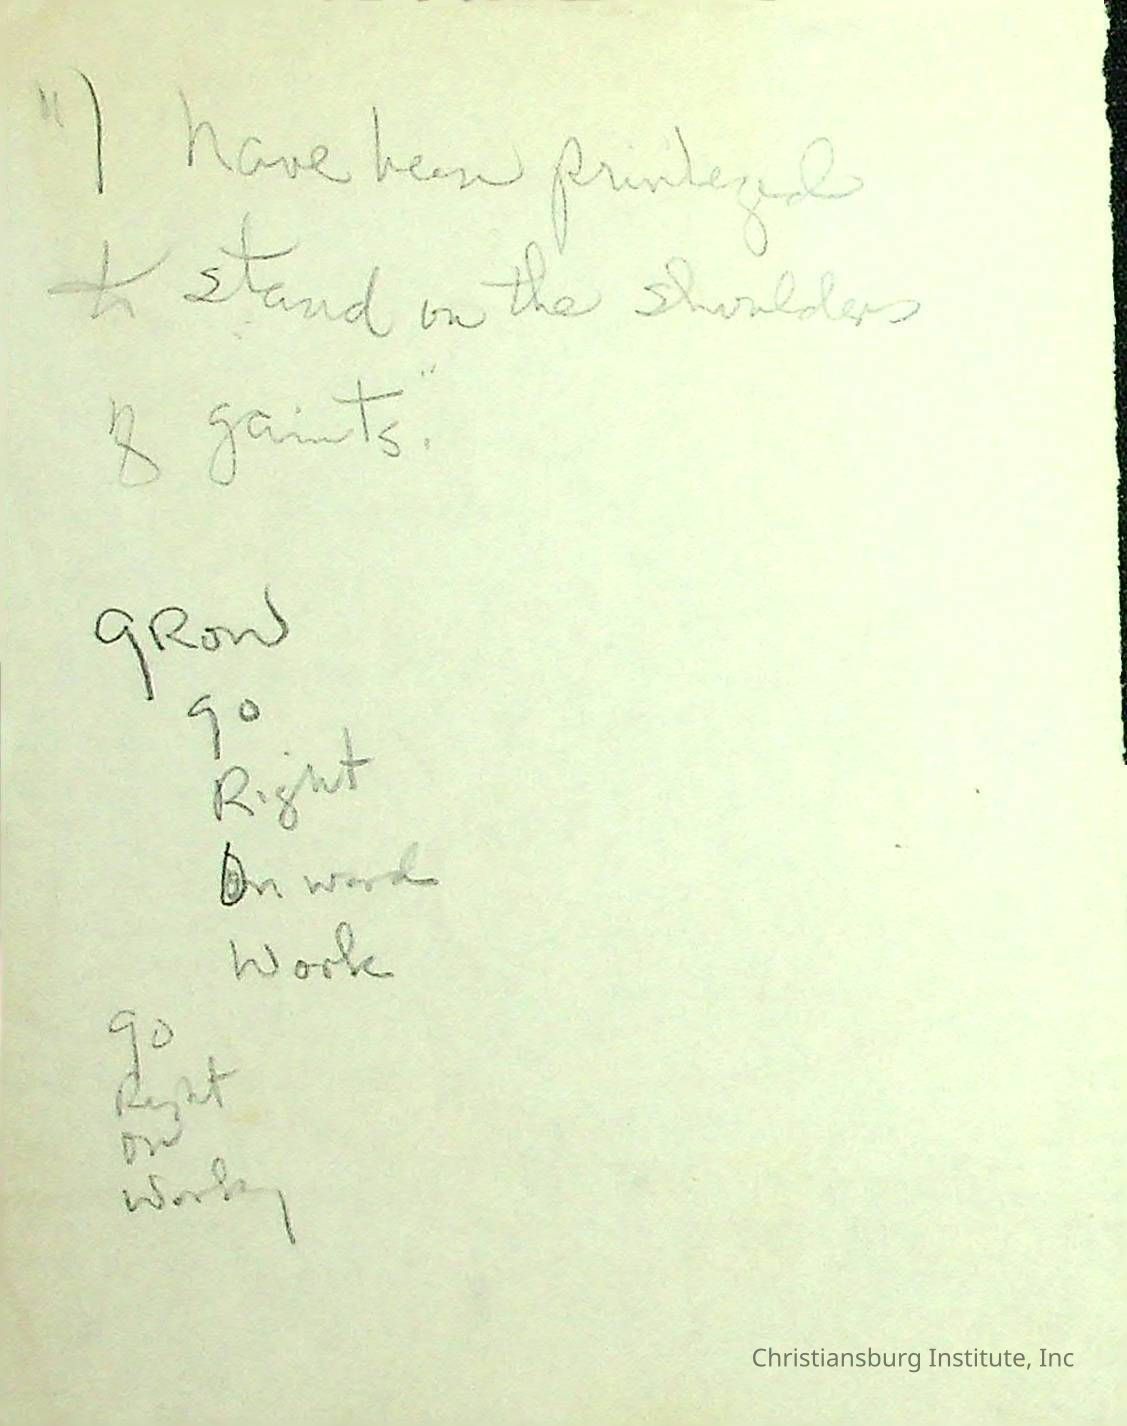 "I have been privileged
to stand on the shoulders
of gaints."
GROW
go
Right
Onward
Work
go
Right
on
Working
Christiansburg Institute, Inc